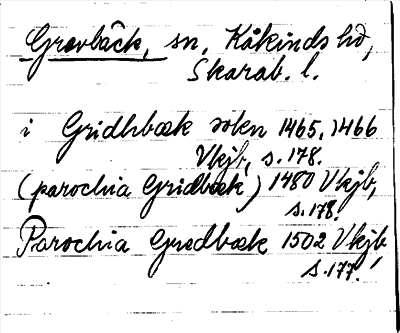 Grevbäck, sn, Kåkinds hd,
Skarab. l.
i Gridhbæk sokn 1465, 1466
Vkjb, s. 178.
(parochia Gridbæk) 1480 Vkjb,
s. 178.
Parochia Gredbæk 1502 Vkjb,
s. 177.